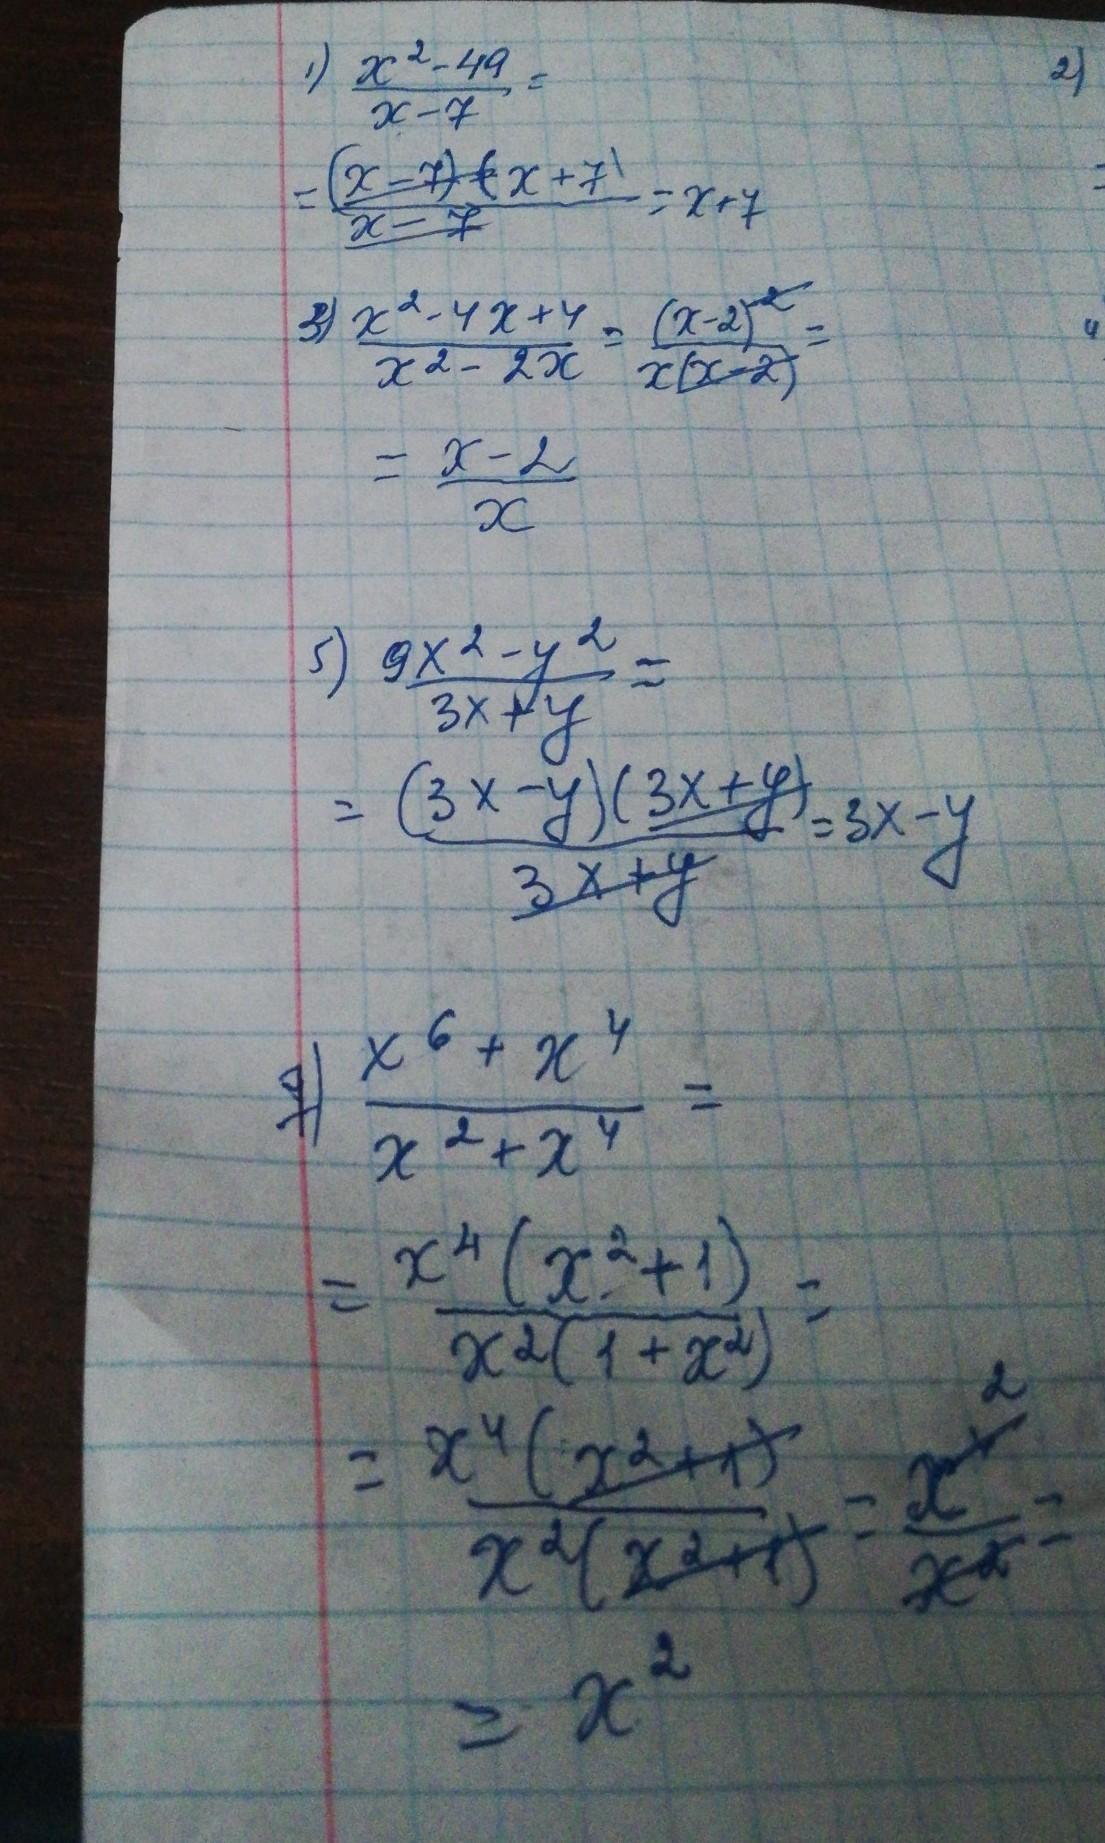 1) (x²-49)/(x-7) =
2)
= ((x-7)(x+7))/(x-7) = x+7
3) (x²-4x+4)/(x²-2x) = (x-2)²/(x(x-2)) =
4
= (x-2)/x
5) (9x²-y²)/(3x+y) =
= ((3x-y)(3x+y))/(3x+y) = 3x-y
7) (x⁶+x⁴)/(x²+x⁴) =
= (x⁴(x²+1))/(x²(1+x²)) =
= (x⁴(x²+1))/(x²(x²+1)) = x⁴ ²/x² =
= x²